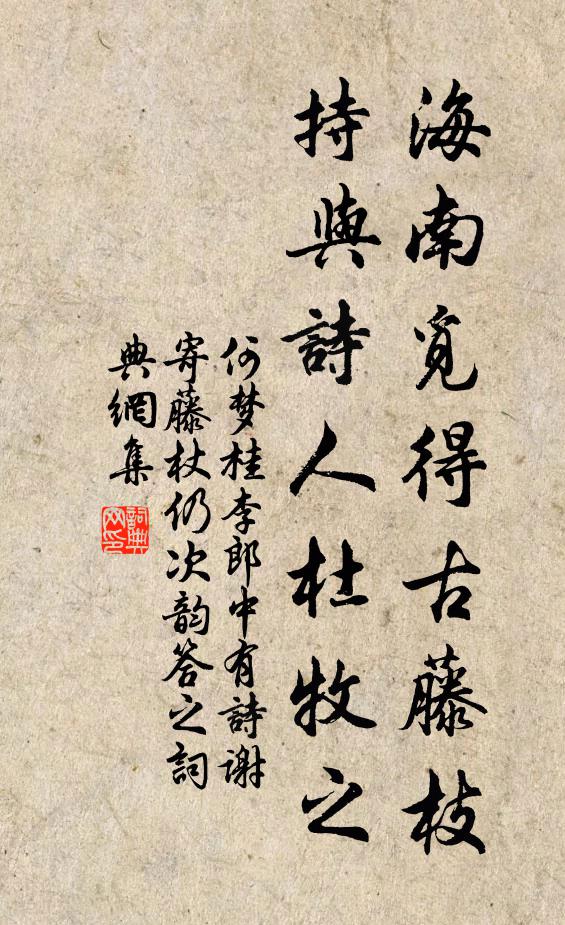 海南覓得古藤枝
持與詩人杜牧之
何梦桂李郎中有詩谢
寄藤杖仍次韵答之詞
典網集
詞典
网印